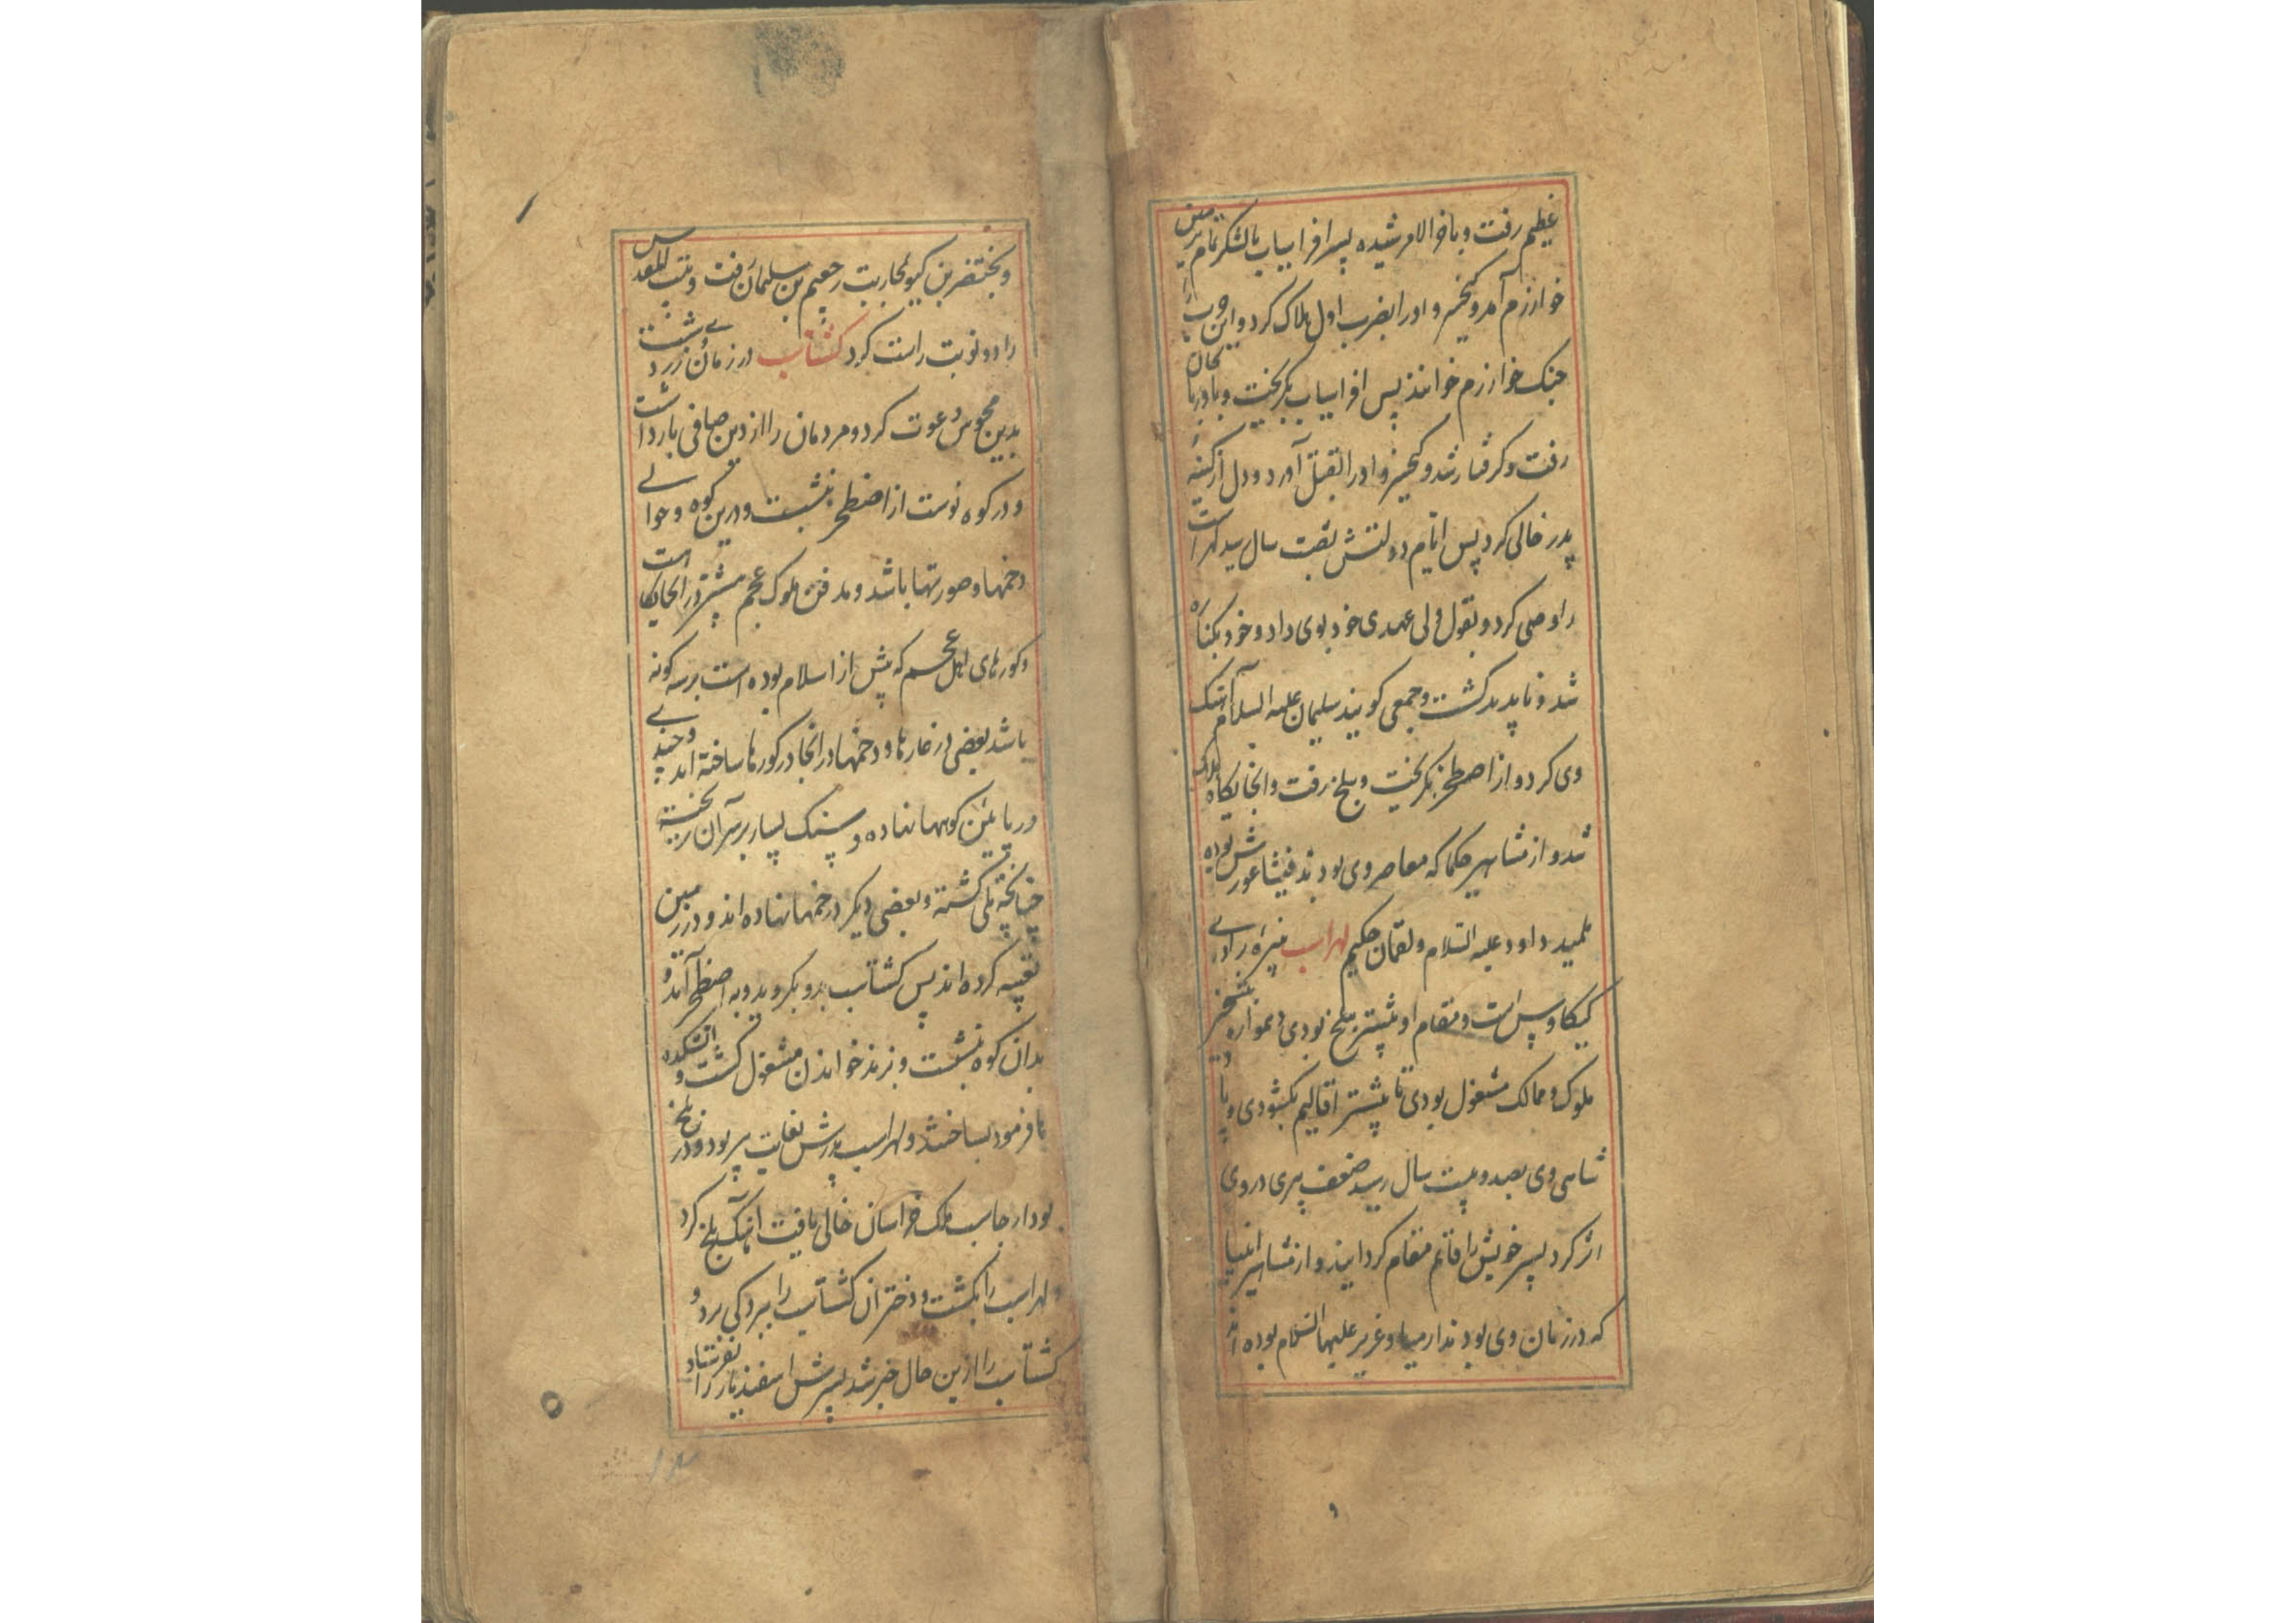 عظیم رفت و باخر الامر شیده پسر افراسیاب با لشکر تمام بزمین
خوارزم آمد و کیخسرو او را بضرب اول هلاک کرد و این حرب را
جنک خوارزم خوانند پس افراسیاب بکریخت و بادربایجان
رفت و کرفتار شد و کیخسرو او را بقتل آورد و دل از کینهٔ
پدر خالی کرد پس ایام دولتش بشصت سال رسید لهراست
را وصی کرد و بقول ولی عهدی خود بوی داد و خود بکناره
شد و ناپدید کشت و جمعی کویند سلیمان علیه السلام آهنک
وی کرد و از اصطخر بکریخت و ببلخ رفت و انجایکاه هلاک
شد و از مشاهیر حکما که معاصر وی بودند فیثاغورش بوده
تلمید داود علیه السلام و لقمان حکیم لهراسب نبیرهٔ برادر
کیکاوس است و مقام او بیشتر ببلخ بودی و همواره بتسخیر
ملوک و ممالک مشغول بودی تا بیشتر اقالیم بکشودی و پاد
شاهی وی بصد و بیست سال رسید ضعف پیری در وی
اثر کرد پسر خویش را قائم مقام کردانید و از مشاهیر انبیا
که در زمان وی بودند ارمیا و عزیر علیهما السلام بوده اند
و بختنصر بن کیو بمحاربت رحبعیم بن سلیمان رفت و بیت المقدس
را دو نوبت راست کرد کشتاسب در زمان وی زردشت
بدین مجوس دعوت کرد و مردمان را از دین صافی بازداشت
و در کوه نوست از اصطخر بنشست و درین کوه و حوالی
دخمها و صورتها باشد و مدفن ملوک عجم بیشتر در انجایکاه است
و کورهای اهل عجم که پیش از اسلام بوده است بر سه کونه
باشد بعضی در غارها و دخمها در انجا در کورها ساخته اند و چندی
در پایین کوهها نهاده و سنک بسیار بر سر آن ریخته
چنانچه تلی کشته و بعضی دیکر در خمها نهاده اند و در زمین
تعبیه کرده اند پس کشتاسب بدو بکروید و به اصطخر آمد و
بدان کوه بنشست و بزند خواندن مشغول کشت و اتشکده
ها فرمود بساختند و لهراسب پدرش بغایت پیر بود و در بلخ
بود ارجاسب ملک خراسان خالی یافت اهنک بلخ کرد
و لهراسب را بکشت و دختران کشتاسب را ببردکی برد و
کشتاسب را ازین حال خبر شد پسرش اسفندیار را بفرستاد